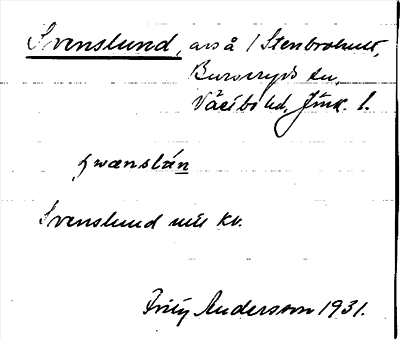 Svenslund, avs å 1 Stenbrohult,
Burseryds sn,
Västbo hd, Jönk. l.
swænslún
Svenslund mtl kv.
Fritz Andersson 1931.